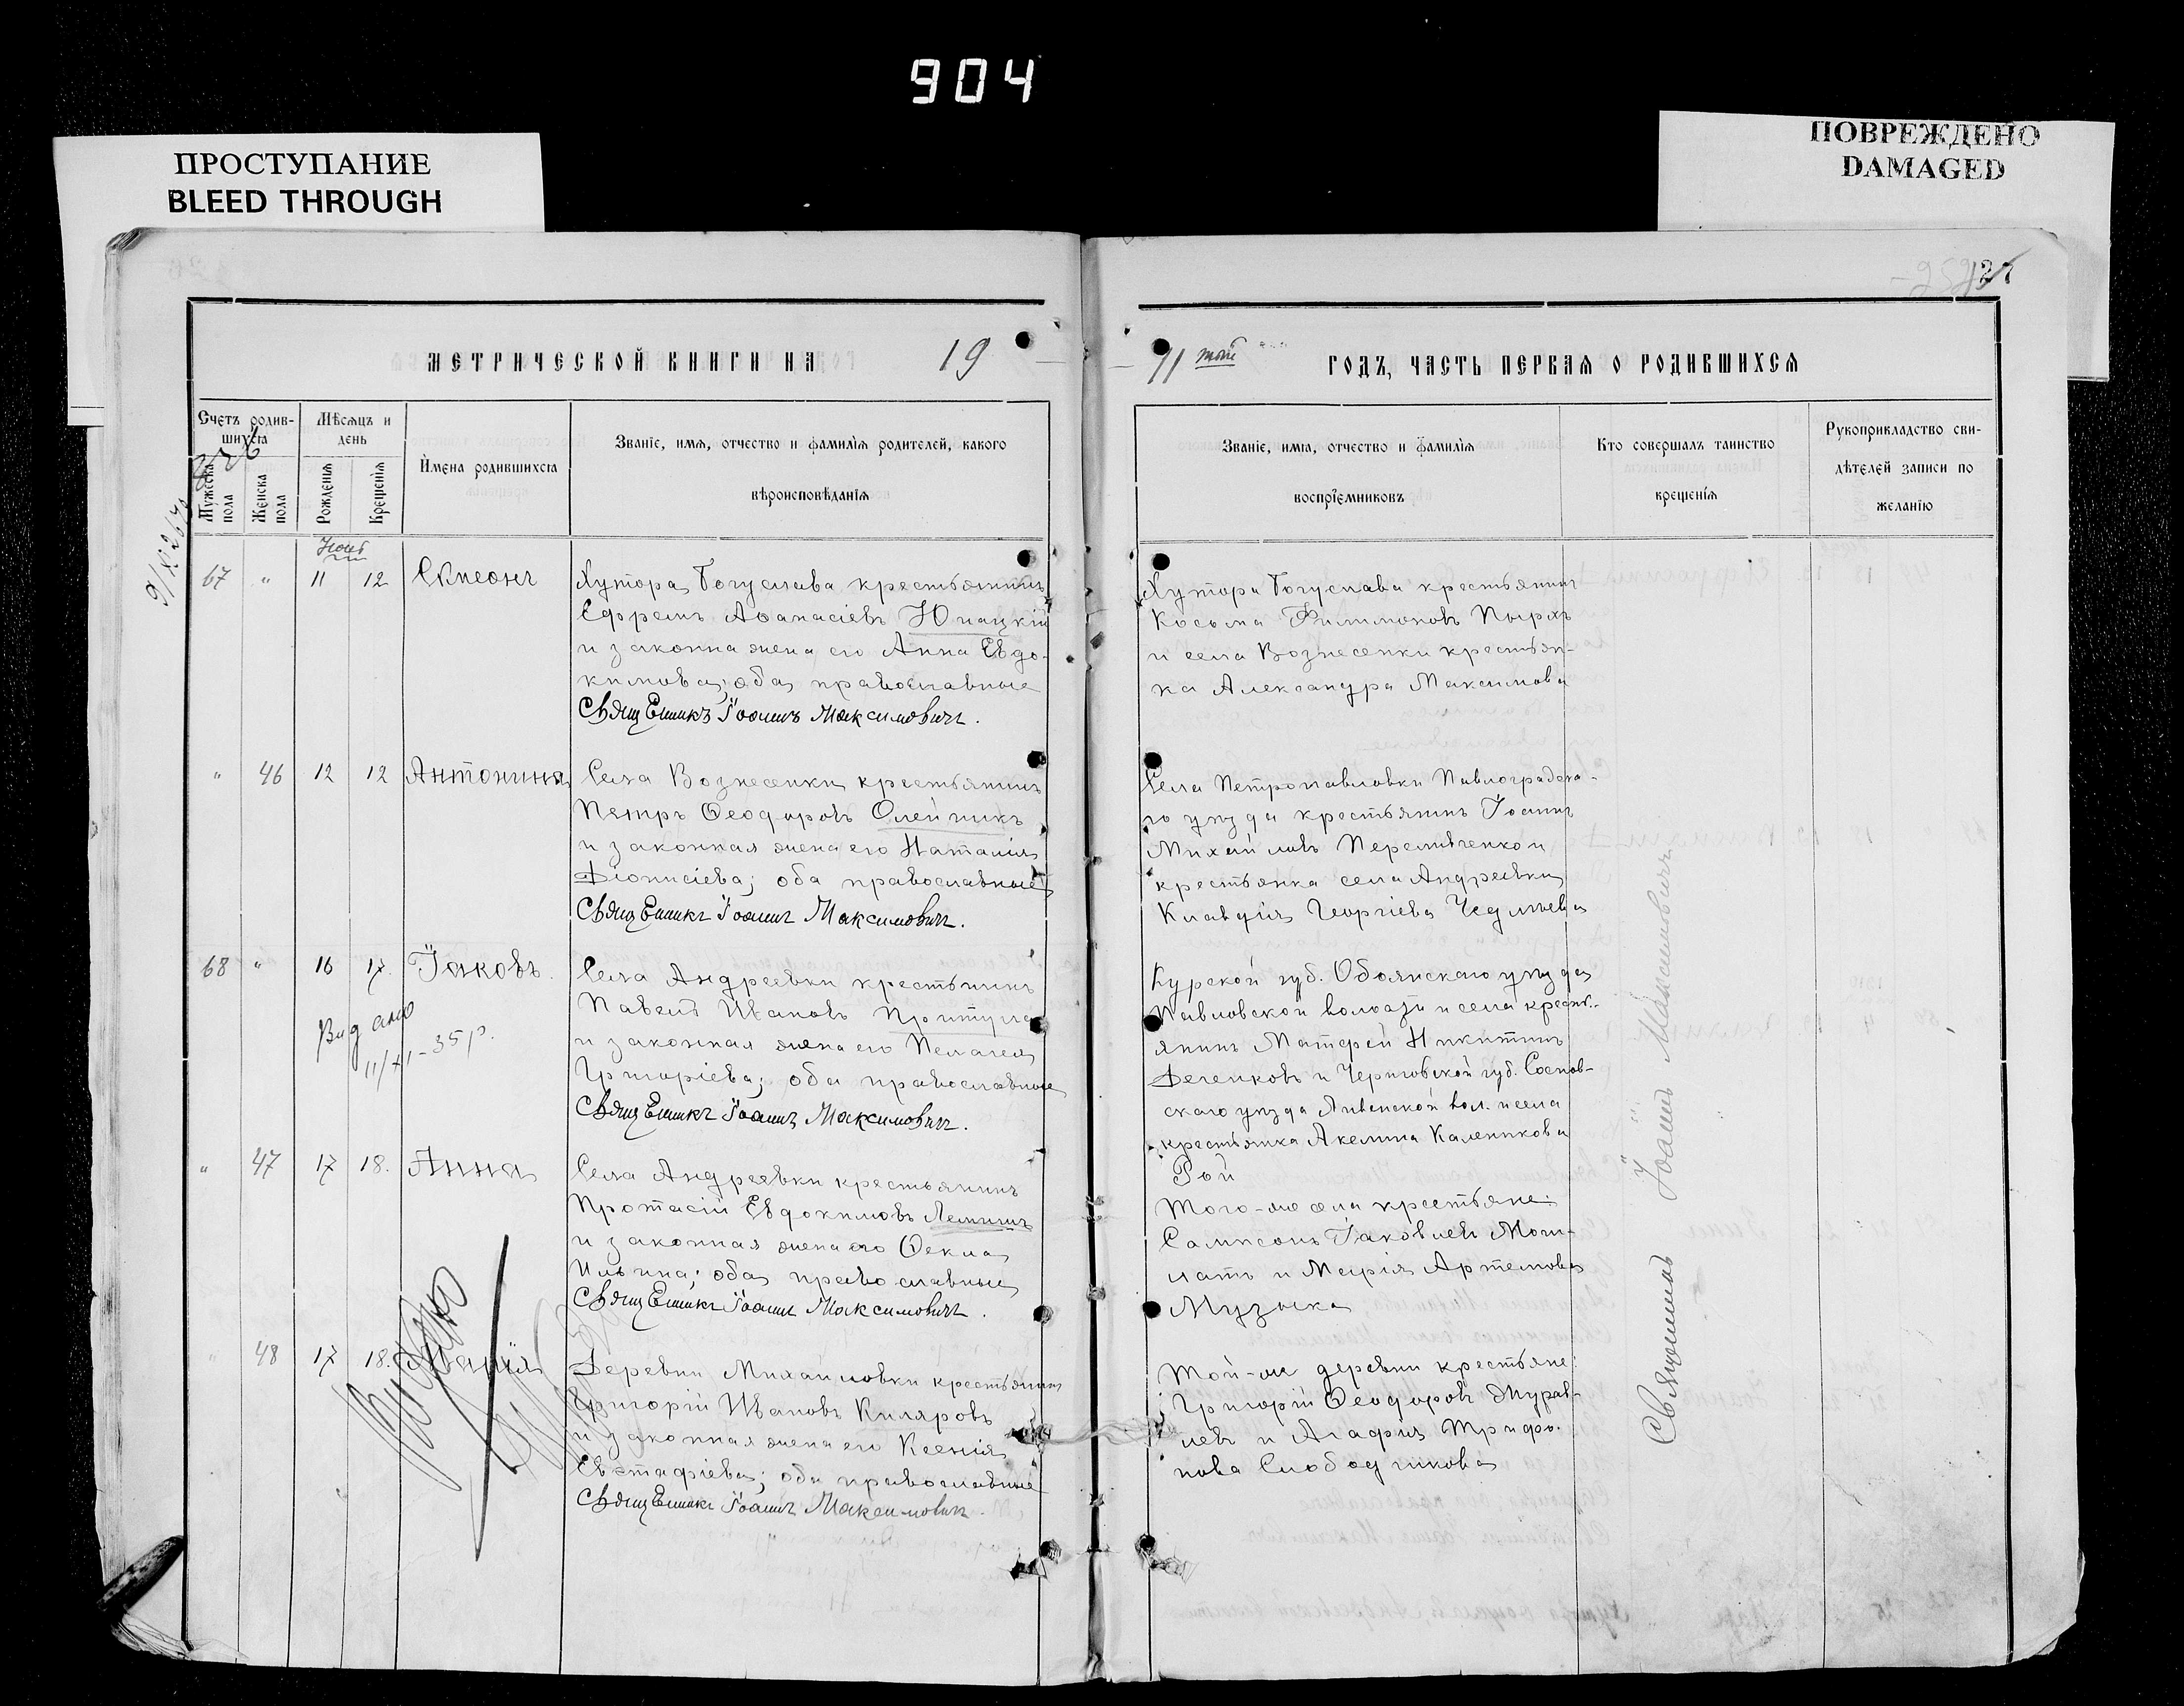 904
ПРОСТУПАНИЕ
BLEED THROUGH
ПОВРЕЖДЕНО
DAMAGED
МЕТРИЧЕСКОЙ КНИГИ НА 19
11 той ГОДЪ, ЧАСТЬ ПЕРВАЯ О РОДИВШИХСЯ
Счетъ родив-
шихся
Мужеска пола
Женска пола
Мѣсяцъ и
день
Рожденія
Крещенія
Имена родившихся
Званіе, имя, отчество и фамилія родителей, какого
вѣроисповѣданія
Званіе, имя, отчество и фамилія
воспріемниковъ
Кто совершалъ таинство
крещенія
Рукоприкладство сви-
дѣтелей записи по
желанію
Июнь
67 " 11 12 Симеонъ
Хутора Богуслава крестьянинъ
Ефремъ Аѳанасіевъ Юнацкій
и законная жена его Анна Евдо-
кимова; оба православные
Священникъ Іоаннъ Максимовичъ.
Хутора Богуслава крестьянинъ
Косьма Филимоновъ Пырхъ
и села Вознесенки крестьян-
ка Александра Максимова
" 46 12 12 Антонина
Села Вознесенки крестьянинъ
Петръ Ѳеодоровъ Олейникъ
и законная жена его Наталія
Діонисіева; оба православные
Священникъ Іоаннъ Максимовичъ.
Села Петропавловки Павлоградска-
го уѣзда крестьянинъ Іоаннъ
Михайловъ и
крестьянка села Андреевки
Клавдія Георгіева
68 " 16 17. Іаковъ.
Села Андреевки крестьянинъ
Павелъ Ивановъ Притула
и законная жена его Пелагея
Григоріева; оба православные
Священникъ Іоаннъ Максимовичъ.
Видано
11/XI-35 р.
Курской губ. Обоянскаго уѣзда
Павловской волости и села кресть-
янинъ Матфей Никитинъ
Деченковъ и Черниговской губ. Соснов-
скаго уѣзда вол. и села
крестьянка Акелина Каленикова
Рой
" 47 17 18. Анна
Села Андреевки крестьянинъ
Протасій Евдокимовъ Лемишъ
и законная жена его Ѳекла
Ильина; оба православные
Священникъ Іоаннъ Максимовичъ.
Того-же села крестьяне:
Сампсонъ Іаковлевъ Моги-
латъ и Марія Артемова
Музыка
" 48 17 18. Марія
Деревни Михайловки крестьянинъ
Григорій Ивановъ Киляровъ
и законная жена его Ксенія
Евстафіева; оба православные
Священникъ Іоаннъ Максимовичъ.
Той-же деревни крестьяне:
Григорій Ѳеодоровъ Журав-
левъ и Агафія Трифо-
нова Слободчикова
Священникъ Іоаннъ Максимовичъ